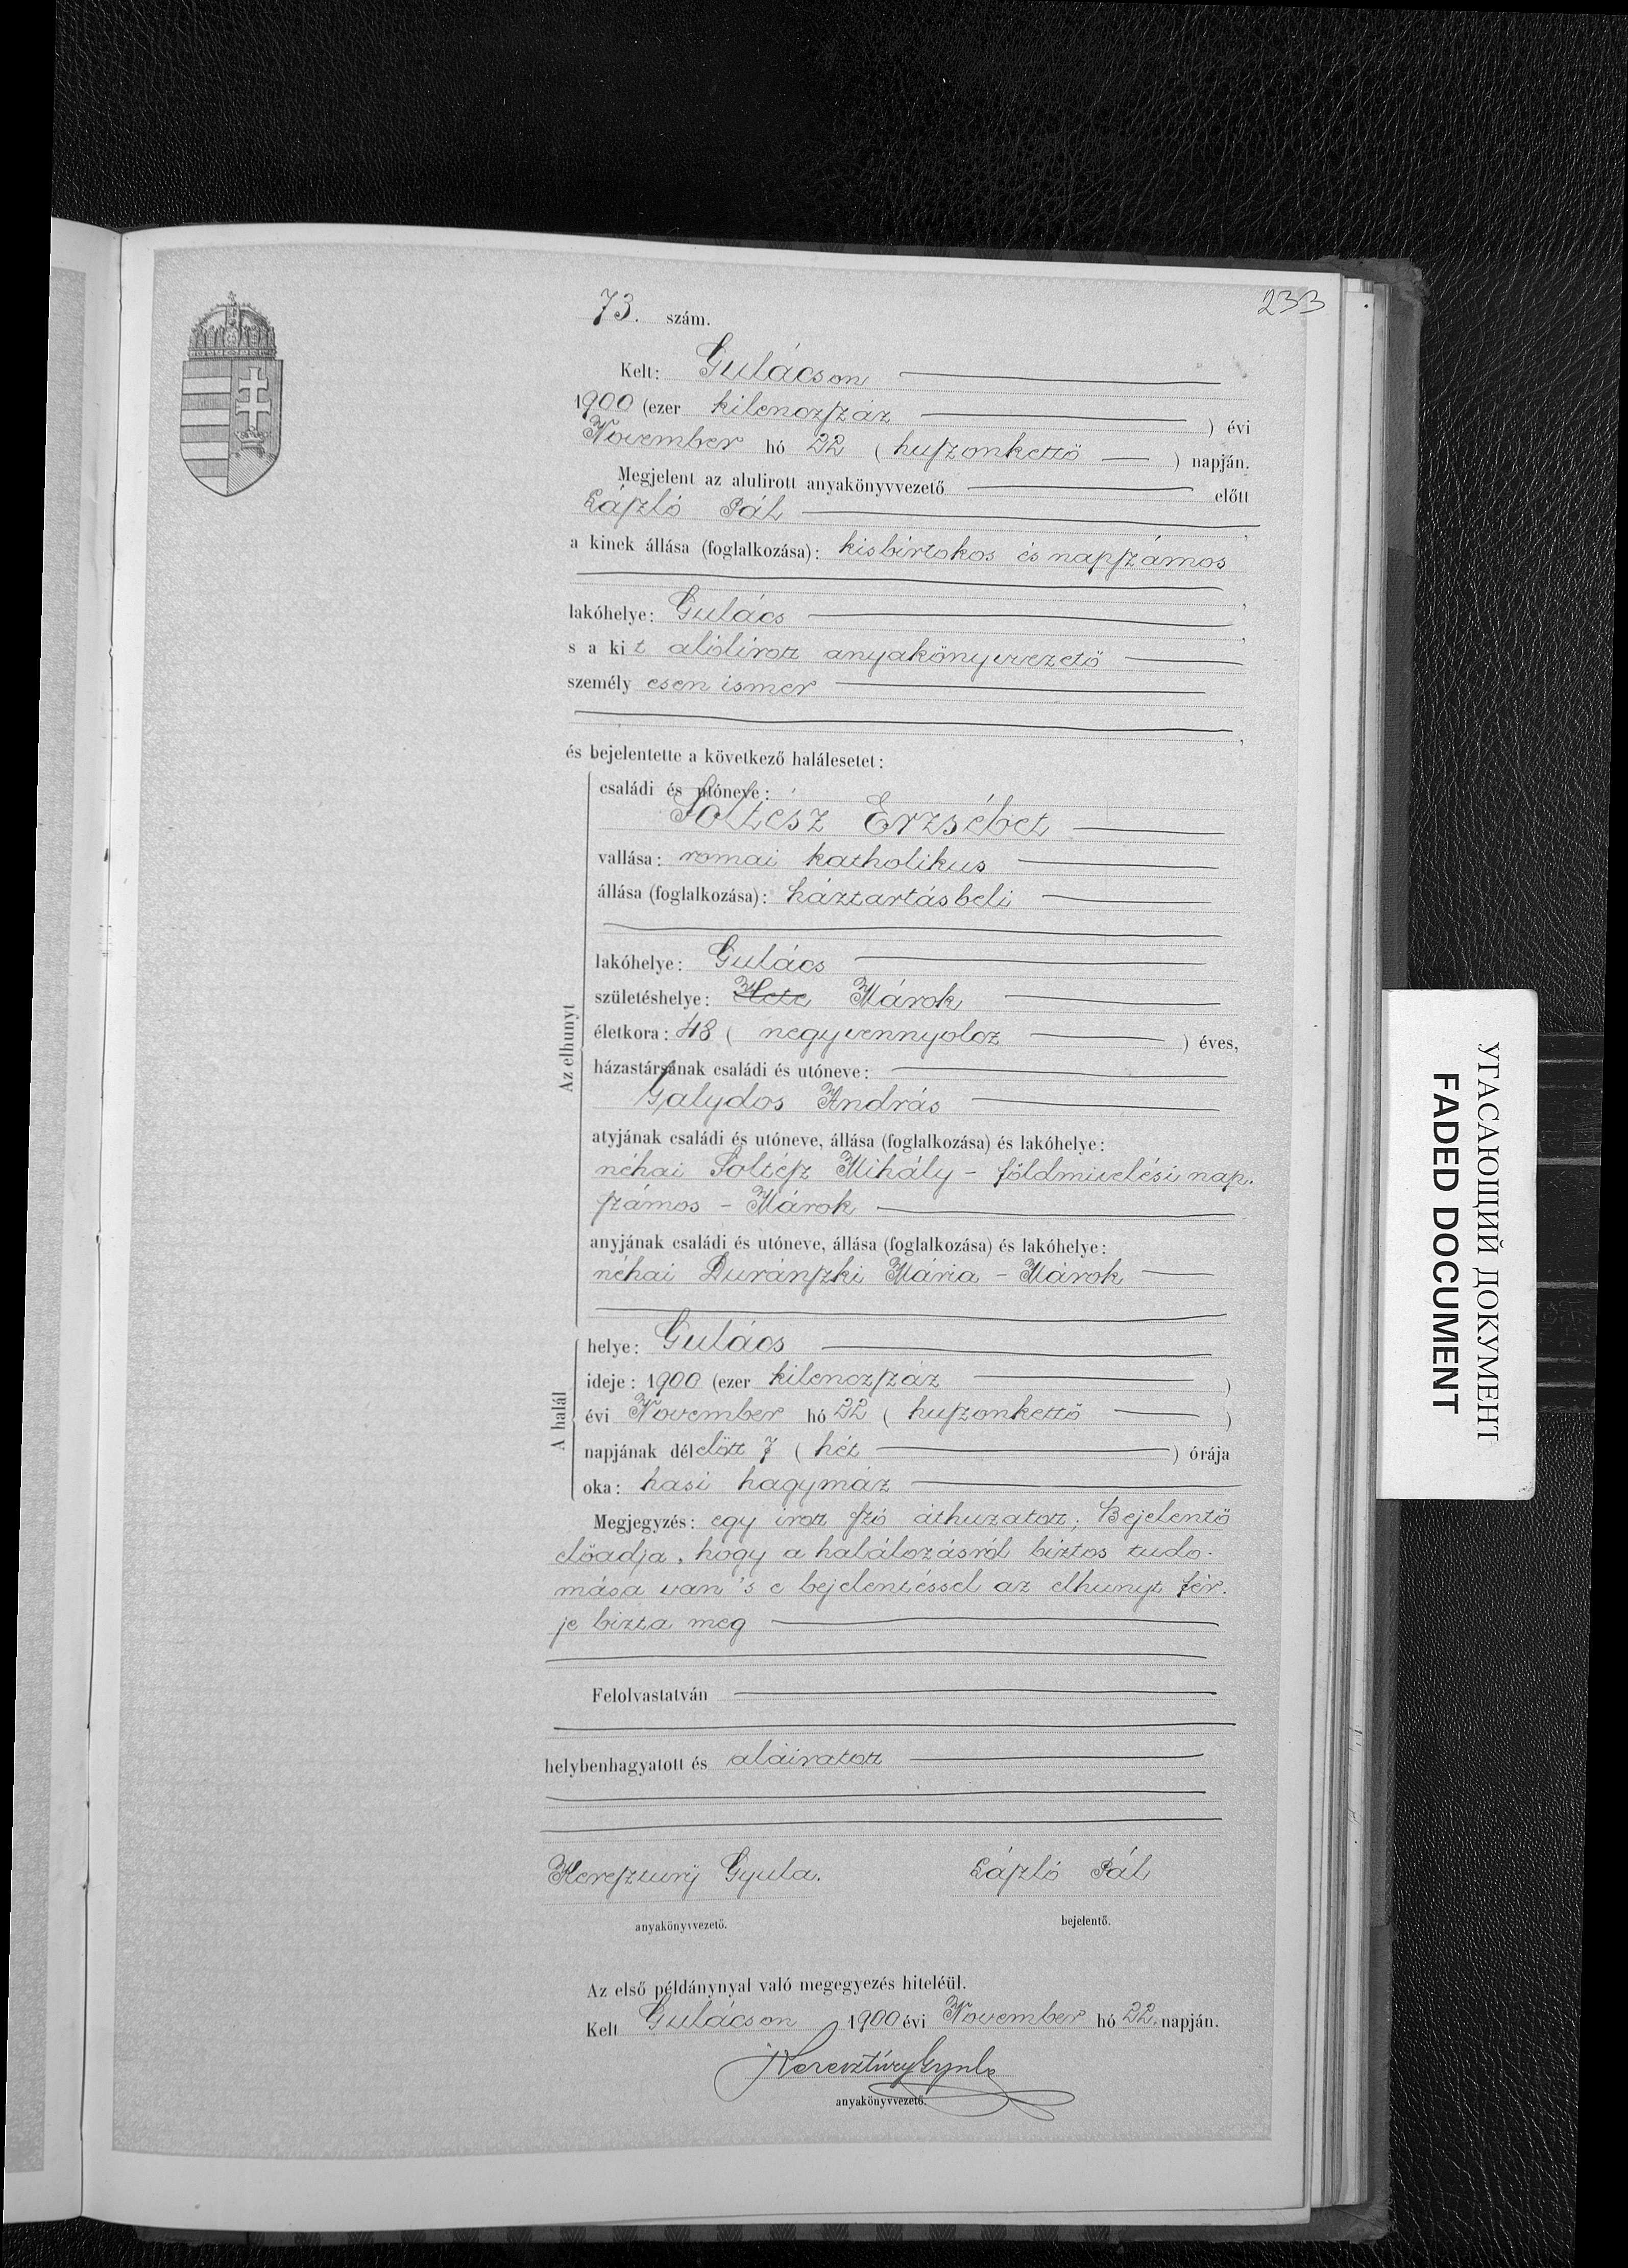 233
73. szám.
Kelt: Gulácson
1900 (ezer kilenczszáz ) évi
November hó 22 ( huszonkettő ) napján.
Megjelent az alulirott anyakönyvvezető előtt
László Pál ,
a kinek állása (foglalkozása): kisbirtokos és napszámos
,
lakóhelye: Gulács ,
s a kit alólirott anyakönyvvezető
személyesen ismer
,
és bejelentette a következő halálesetet:
Az elhunyt
családi és utóneve:
Soltész Erzsébet
vallása: romai katholikus
állása (foglalkozása): háztartásbeli
lakóhelye: Gulács
születéshelye: Hete Márok
életkora: 48 ( negyvennyolcz ) éves,
házastársának családi és utóneve:
Galydos András
atyjának családi és utóneve, állása (foglalkozása) és lakóhelye:
néhai Soltész Mihály - földmivelési nap.
számos - Márok
anyjának családi és utóneve, állása (foglalkozása) és lakóhelye:
néhai Duránszki Mária - Márok
A halál
helye: Gulács
ideje: 1900 (ezer kilenczszáz )
évi November hó 22 ( huszonkettő )
napjának délelőtt 7 ( hét ) órája
oka: hasi hagymáz
Megjegyzés: egy irott szó áthuzatott; Bejelentő
előadja, hogy a halálozásról biztos tudo-
mása van 's e bejelentéssel az elhunyt fér-
je bizta meg
Felolvastatván
helybenhagyatott és aláiratott
Keresztury Gyula. László Pál
anyakönyvvezető. bejelentő.
Az első példánynyal való megegyezés hiteléül.
Kelt Gulácson 1900 évi November hó 22. napján.
Keresztúry Gyula
anyakönyvvezető.
УГАСАЮЩИЙ ДОКУМЕНТ
FADED DOCUMENT